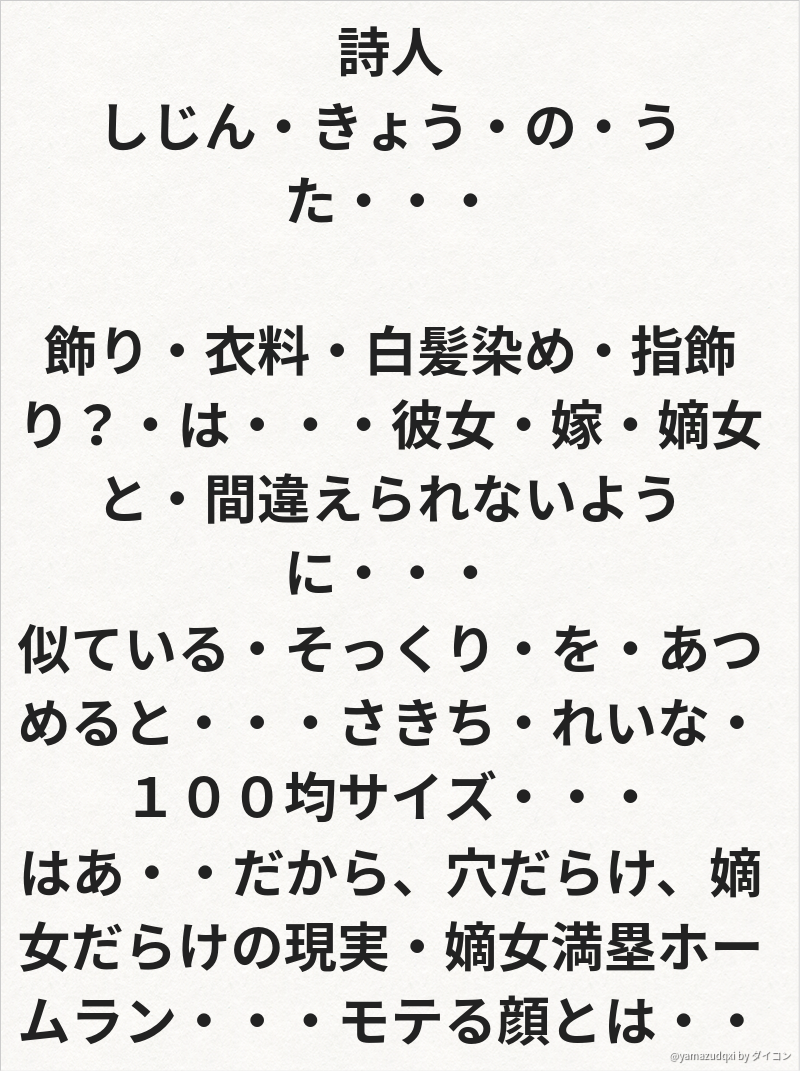 詩人
しじん・きょう・の・う
た・・・
飾り・衣料・白髪染め・指飾
り？・は・・・彼女・嫁・嫡女
と・間違えられないよう
に・・・
似ている・そっくり・を・あつ
めると・・・さきち・れいな・
１００均サイズ・・・
はあ・・だから、穴だらけ、嫡
女だらけの現実・嫡女満塁ホー
ムラン・・・モテる顔とは・・
@yamazudqxi by ダイコン